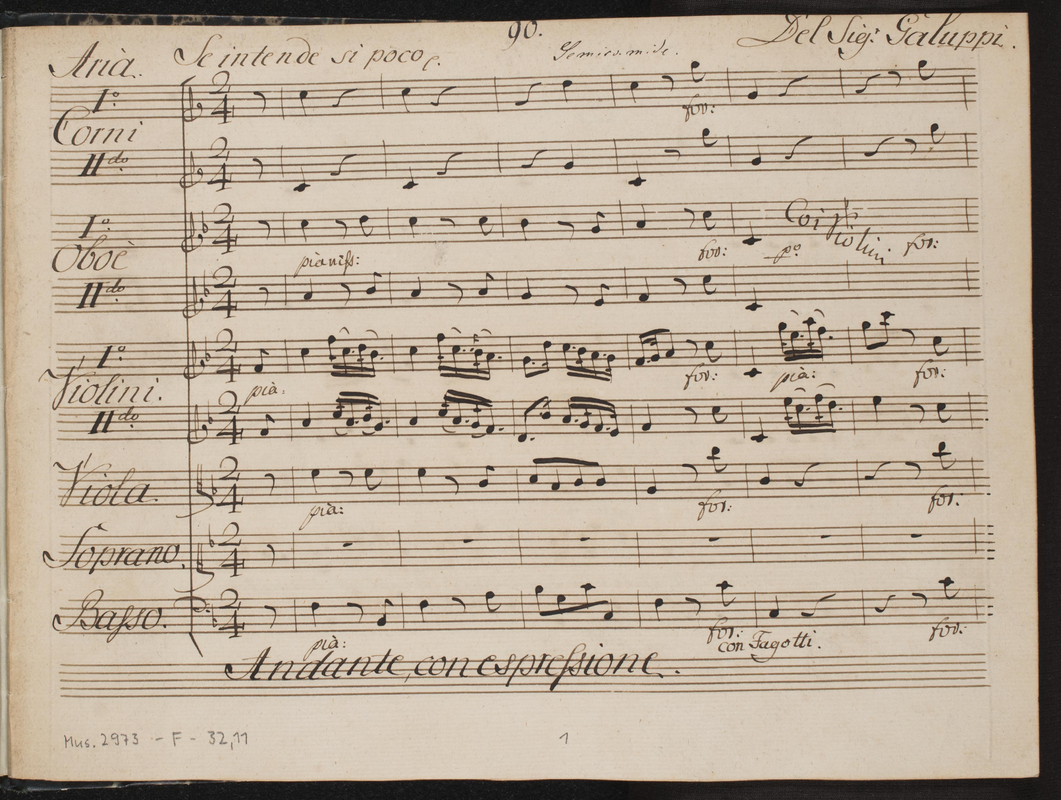 90.
Aria. Se intende si poco Del Sig.r Galuppi.
I.o
Corni
for:
II.do
I.o
Oboè
pianiss: for: p.o Coi Violini. for:
II.do
I.o
Violini.
pia: for: pia: for:
II.do
Viola.
pia: for: for:
Soprano.
Basso.
pia: for: for:
con Fagotti.
Andante, con espressione.
Mus. 2973 - F - 32,11 1